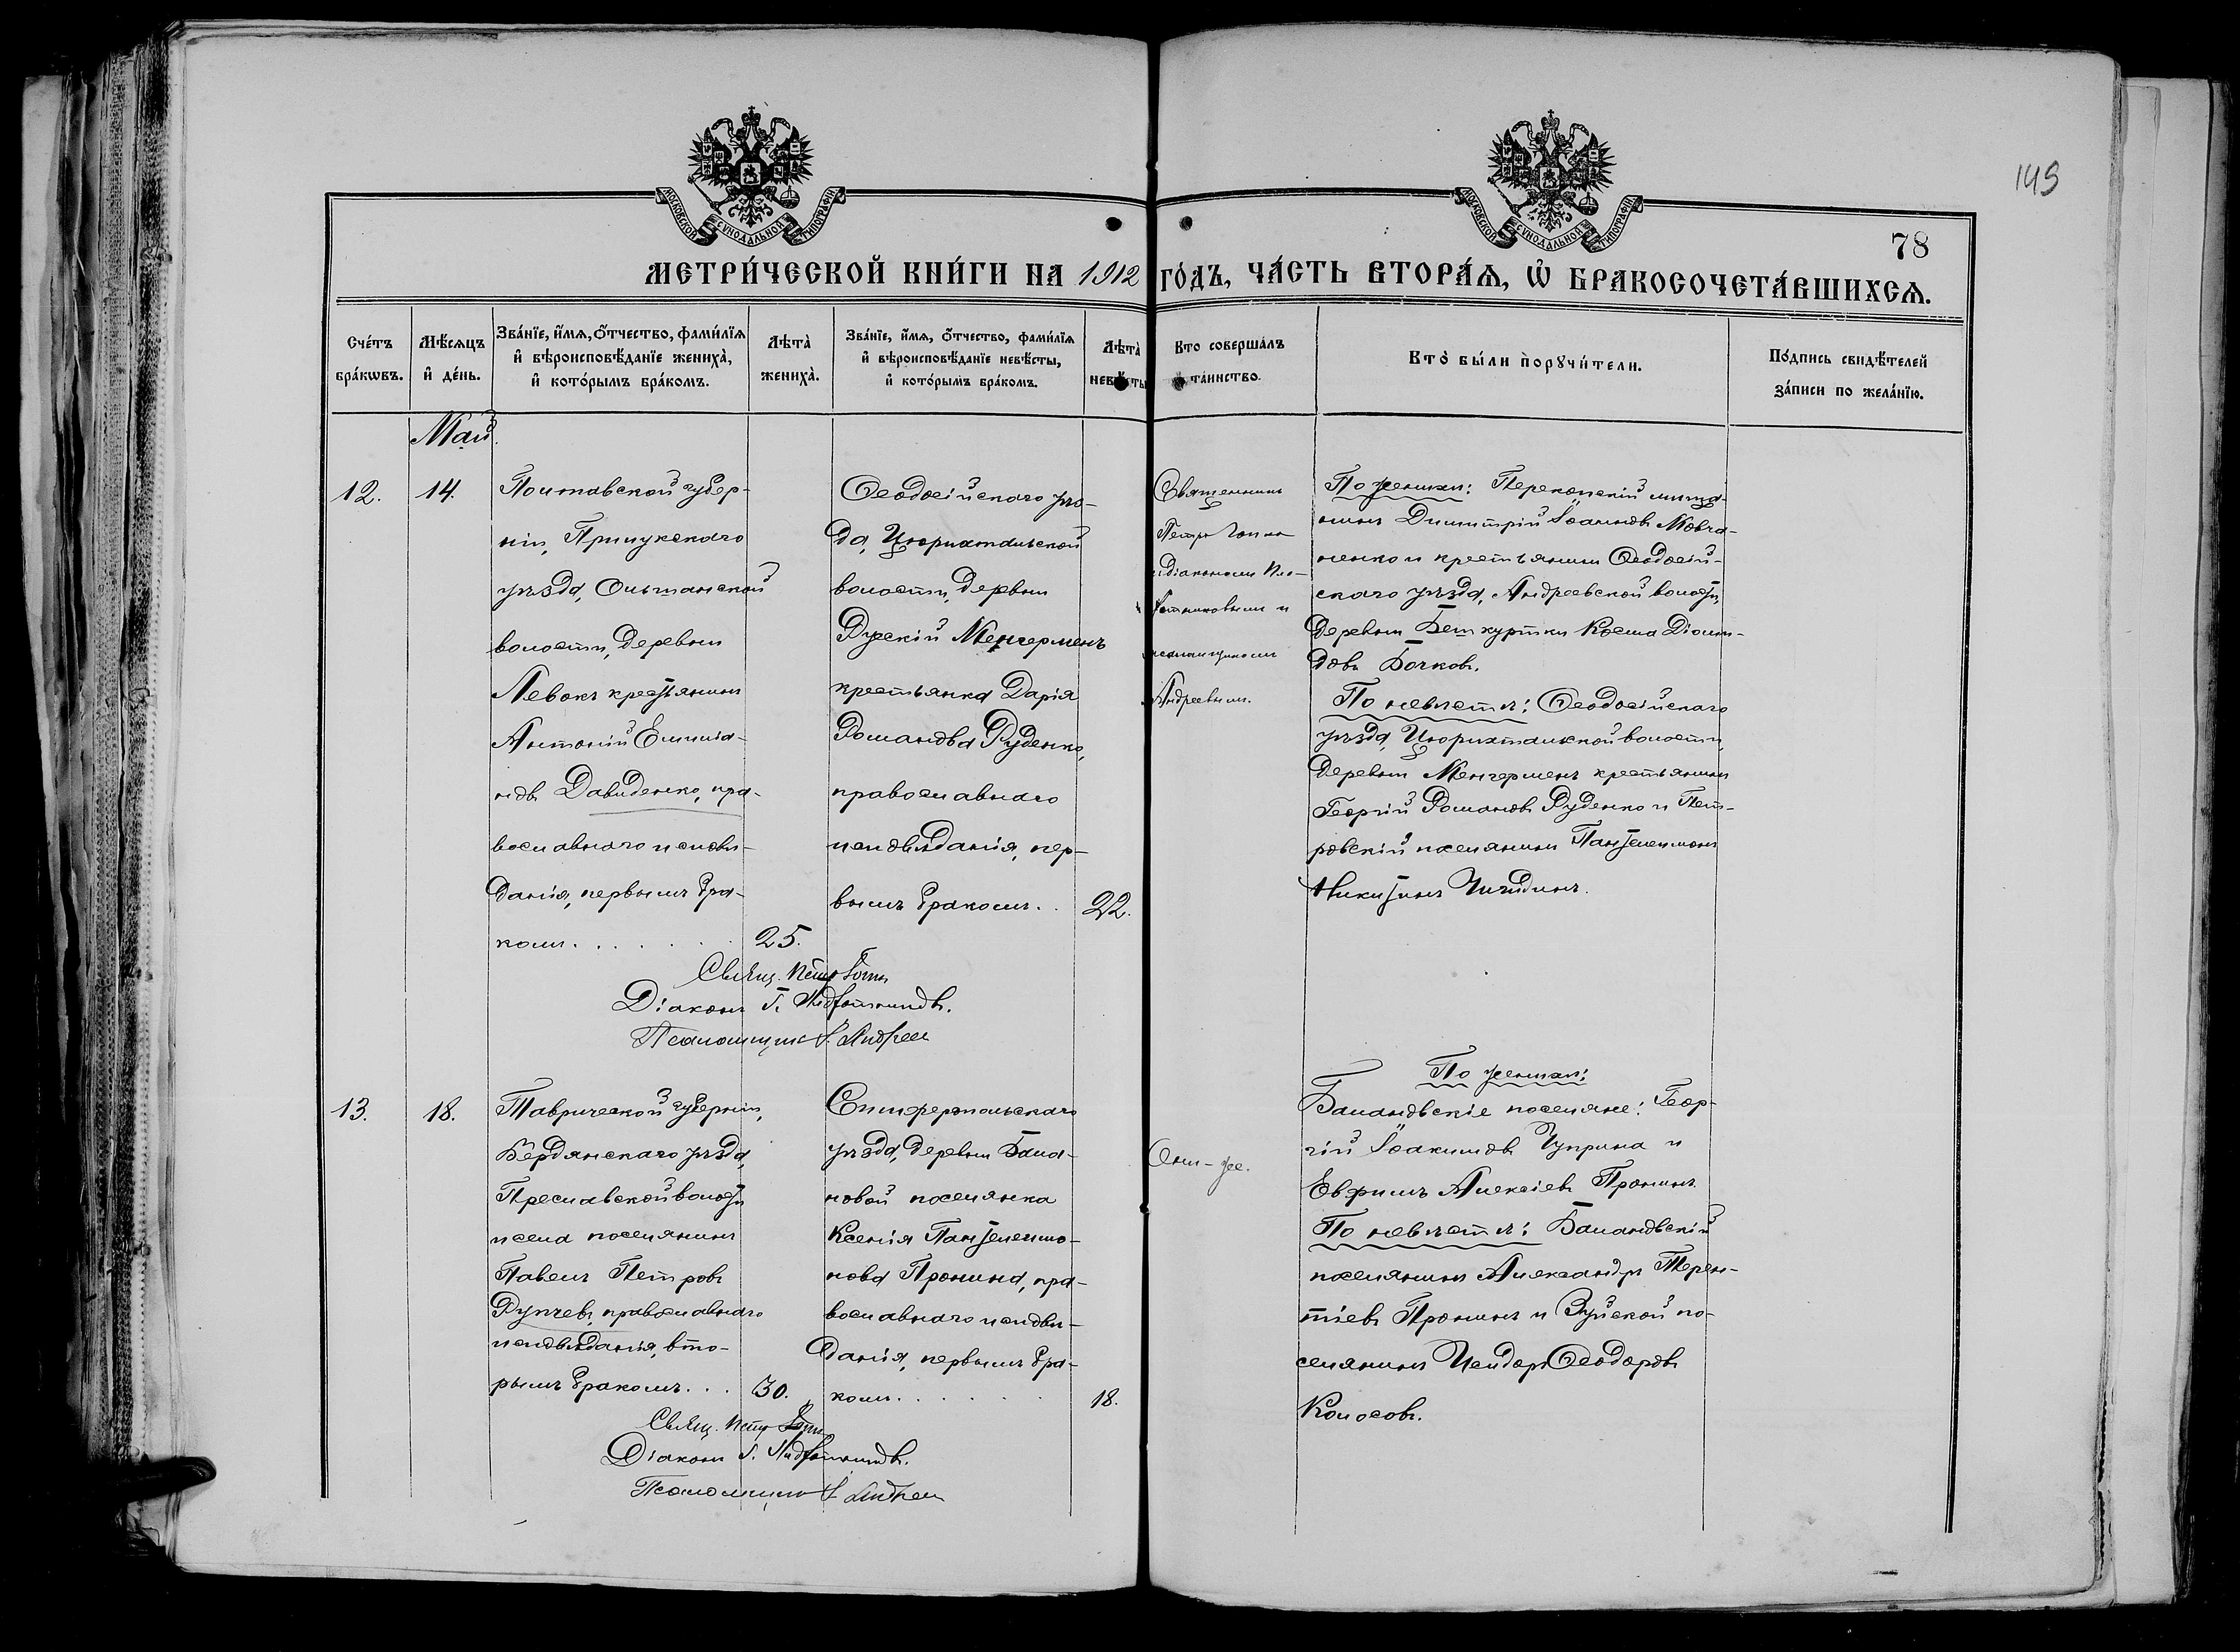 МОСКОВСКОЙ СУНОДАЛЬНОЙ ТИПОГРАФІИ
МОСКОВСКОЙ СУНОДАЛЬНОЙ ТИПОГРАФІИ
149
78
МЕТРИ́ЧЕСКОЙ КНИ́ГИ НА 1912 ГО́ДЪ, ЧА́СТЬ ВТОРА́Ѧ, Ѡ҆ БРАКОСОЧЕТА́ВШИХСѦ.
Сче́тъ
бра́кѡвъ.
Мѣ́сѧцъ
и҆ де́нь.
Зва́нїе, и҆́мѧ, ѻ҆́тчество, фами́лїѧ
и҆ вѣроисповѣ́данїе жениха̀,
и҆ кото́рымъ бра́комъ.
Лѣта̀
жениха̀.
Зва́нїе, и҆́мѧ, ѻ҆́тчество, фами́лїѧ
и҆ вѣроисповѣ́данїе невѣ́сты,
и҆ кото́рымъ бра́комъ.
Лѣта̀
невѣ́сты
Кто соверша́лъ
та́инство.
Кто̀ бы́ли порꙋчи́тели.
По́дпись свидѣ́телей
за́писи по жела́нїю.
Май.
12.
14.
Полтавской губер-
ніи, Прилукскаго
уѣзда, Ольшанской
волости, деревни
Левокъ крестьянинъ
Антоній Емилiа-
новъ Давиденко, пра-
вославнаго исповѣ-
данія, первымъ бра-
комъ . . . . . .
25.
Ѳеодосійскаго уѣз-
да, Цюрихтальской
волости, деревни
Русскій Менгерменъ
крестьянка Дарія
Романова Руденко,
православнаго
исповѣданія, пер-
вымъ бракомъ . .
22.
Священникъ
Петръ
діакономъ
и
псаломщикомъ
Андреевымъ.
По женихѣ: Перекопскій мѣща-
нинъ Димитрій Іоанновъ Мовча-
ненко и крестьянинъ Ѳеодосій-
скаго уѣзда, Андреевской волости,
деревни Бешкуртки Косма Діоми-
довъ Бочковъ.
По невѣстѣ: Ѳеодосійскаго
уѣзда, Цюрихтальской волости,
деревни Менгерменъ крестьянинъ
Георгій Романовъ Руденко и Пет-
ровскій поселянинъ Пантелеимонъ
Никитинъ
Свящ. Петръ
Діаконъ
Псаломщикъ Андреев
13.
18.
Таврической губерніи,
Бердянскаго уѣзда,
Преславской волости
и села поселянинъ
Павелъ Петровъ
Рупчевъ, православнаго
исповѣданія, вто-
рымъ бракомъ . . .
30.
Симферопольскаго
уѣзда, деревни Бала-
новой поселянка
Ксенія Пантелеимо-
нова Пронина, пра-
вославнаго исповѣ-
данія, первымъ бра-
комъ . . . . . .
18.
Они-же.
По женихѣ:
Балановскіе поселяне: Геор-
гій Іоакимовъ Чуприна и
Евфимъ Алексіевъ Пронинъ.
По невѣстѣ: Балановскій
поселянинъ Александръ Терен-
тіевъ Пронинъ и Зуйской по-
селянинъ Исидоръ Ѳеодоровъ
Колосовъ.
Свящ. Петръ
Діаконъ
Псаломщикъ Андреев